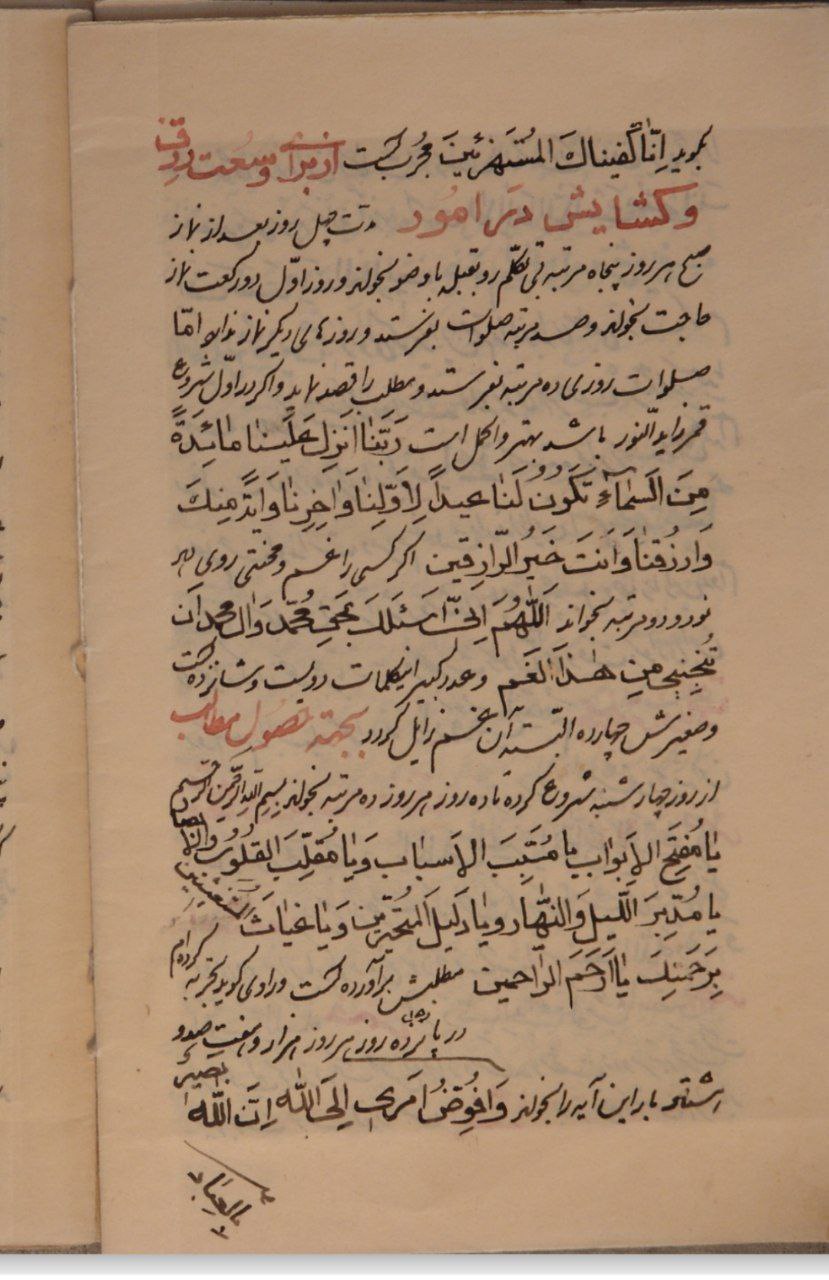 بگوید اِنّا کَفیناکَ المُستَهزِئینَ مجرب است از برای وسعت رزق
و کشایش در امور مدت چهل روز بعد از نماز
صبح هر روز پنجاه مرتبه بی تکلّم رو بقبله با وضو بخواند و روز اوّل دو رکعت نماز
حاجت بخواند و صد مرتبه صلوات بفرستد و روزهای دیکر نماز ندارد امّا
صلوات روزی ده مرتبه بفرستد و مطلب را قصد نماید و اکر در اوّل شروع
قمر زاید النّور باشد بهتر و اکمل است رَبَّنا اَنزِل عَلَینا مائِدَةً
مِنَ السَّماءِ تَکُونُ لَنا عیداً لِاَوَّلِنا وَاخِرِنا وَایَةً مِنکَ
وَارزُقنا وَاَنتَ خَیرُ الرّازِقین اکر کسی را غم و محنتی روی دهد
نود و دو مرتبه بخواند اَللّهُمَّ اِنّی اَسئَلُکَ بِحَقِّ مُحَمَّد وَال محمد اَن
تُنجِیَنی مِن هذَا الغَم و عدد کبیر اینکلمات دویست و شانزده است
و صغیرش چهارده البتّه آن غم زایل کردد بجهة حصول مطالب
از روز چهارشنبه شروع کرده تا ده روز هر روز ده مرتبه بخواند بسم الله الرّحمن الرّحیم
یا مُفَتِّحَ الاَبواب یا مُسَبِّبَ الاَسباب وَیا مُقَلِّبَ القُلوُب وَالاَبصار
یا مُدَبِّرَ اللَّیلِ وَالنَّهار وَیا دَلیلَ المُتَحَیِّرین وَیا غیاثَ المُستَغیثین
بِرَحمَتِکَ یا اَرحَمَ الرّاحمین مطلبش برآورده است و راوی کوید تجربه کرده‌ام
در پانزده روز هر روز هزار و هفت صد و
هشتاد بار این آیه را بخواند وَاُفَوِّضُ اَمری اِلَی اللّه اِنَّ اللّهَ بَصیرٌ
بِالعِباد